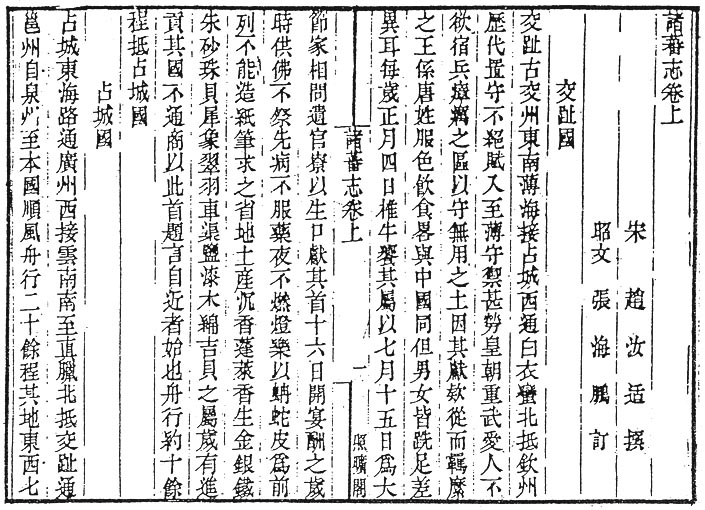 諸蕃志卷上
宋 趙 汝 适 撰
昭文 張 海 鵬 訂
交趾國
交趾古交州東南薄海接占城西通白衣蠻北抵欽州
歷代置守不絕賦入至薄守禦甚勞皇朝重武愛人不
欲宿兵瘴癘之區以守無用之土因其獻欵從而羈縻
之王係唐姓服色飲食畧與中國同但男女皆跣足差
異耳每歲正月四日椎牛饗其屬以七月十五日爲大
諸蕃志卷上 一 照曠閣
節家相問遺官寮以生口獻其首十六日開宴酬之歲
時供佛不祭先病不服藥夜不燃燈樂以蚺蛇皮爲前
列不能造紙筆求之省地土產沉香蓬萊香生金銀鐵
朱砂珠貝犀象翠羽車渠鹽漆木綿吉貝之屬歲有進
貢其國不通商以此首題言自近者始也舟行約十餘
程抵占城國
占城國
占城東海路通廣州西接雲南南至眞臘北抵交趾通
邕州自泉州至本國順風舟行二十餘程其地東西七